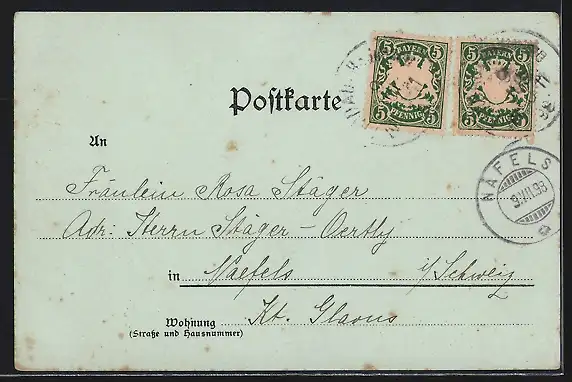 5 BAYERN 5
5 PFENNIG 5
5 BAYERN 5
5 PFENNIG 5
Postkarte
An
NÄFELS
9.VII.98
Fräulein Rosa Stäger
Adr: Herrn Stäger-Oertly
in Naefels i/Schweiz
Kt. Glarus
Wohnung
(Straße und Hausnummer)